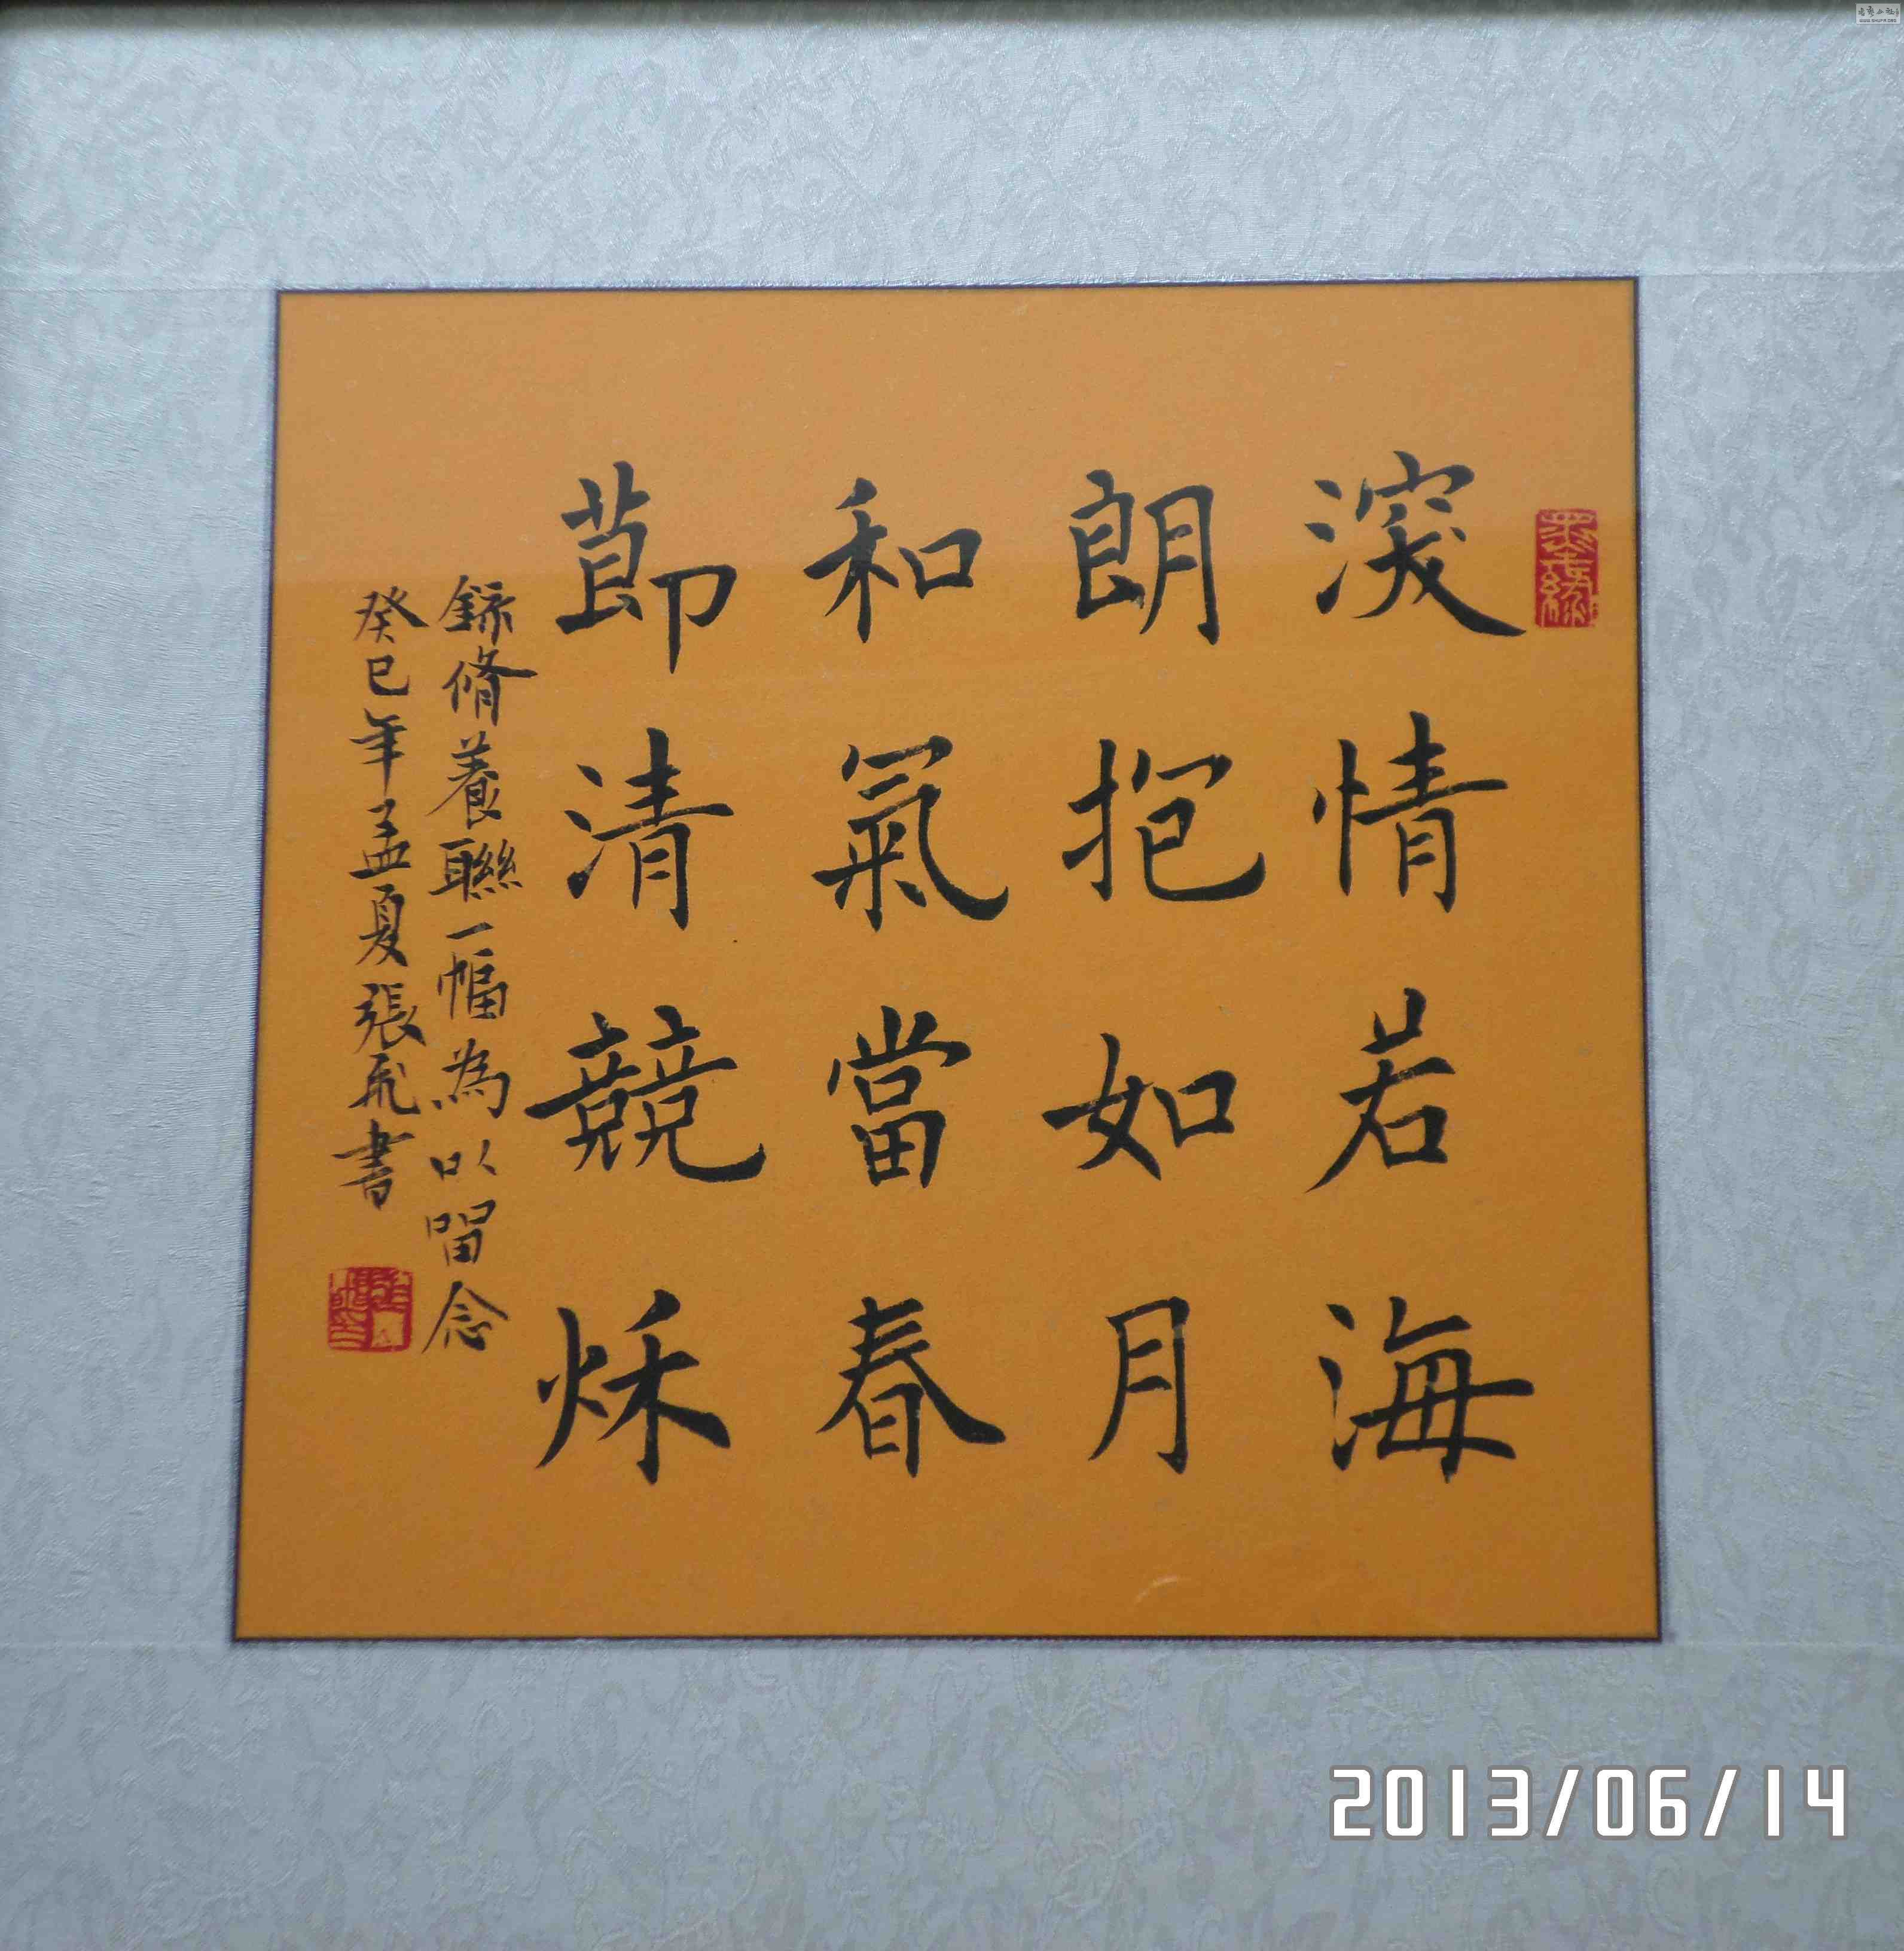 深情若海
朗抱如月
和氣當春
莭清競烁
錄脩養聯一幅為以留念
癸巳年孟夏張飛書
2013/06/14